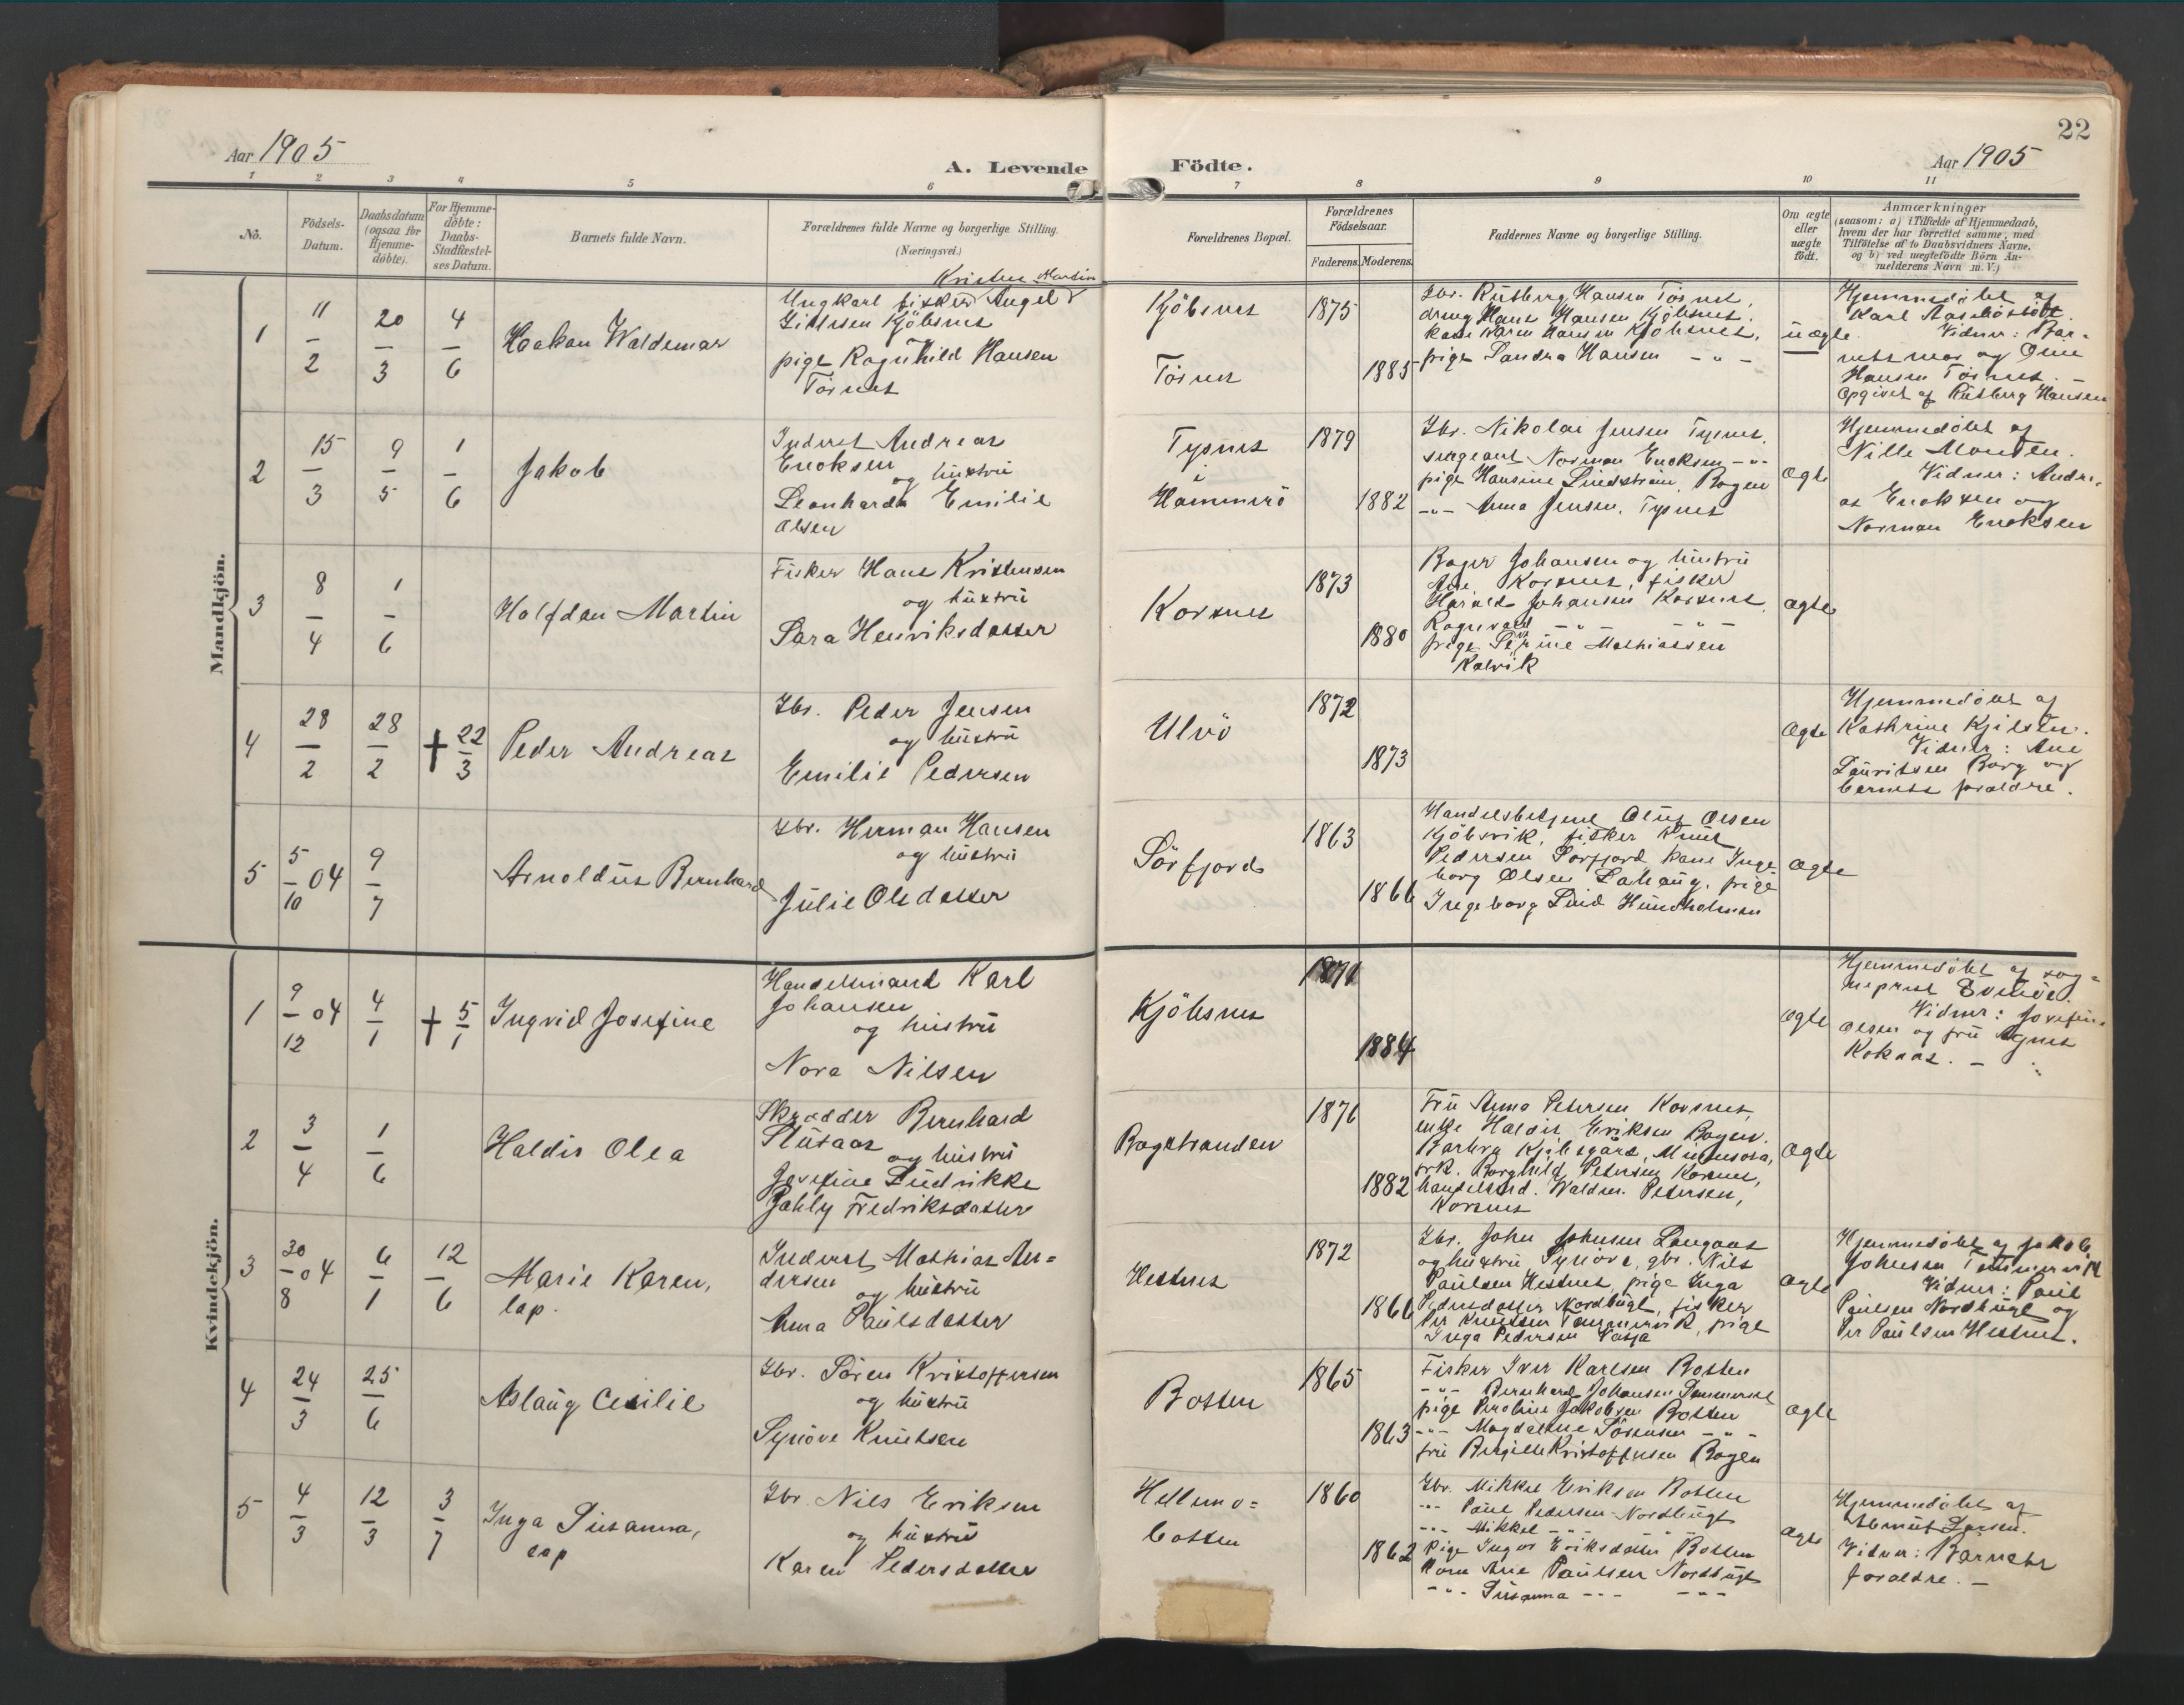 22
Aar 1905
A. Levende Födte.
Aar 1905
1 2 3 4 5 6 7 8 9 10 11
No.
Födsels-
Datum.
Daabsdatum
(ogsaa for
Hjemme-
döbte).
For Hjemme-
döbte:
Daabs-
Stadfæstel-
ses Datum.
Barnets fulde Navn.
Forældrenes fulde Navne og borgerlige Stilling.
(Næringsvei.)
Forældrenes Bopæl.
Forældrenes
Födselsaar.
Faderens. Moderens.
Faddernes Navne og borgerlige Stilling.
Om ægte
eller
uægte
födt.
Anmærkninger
(saasom: a) i Tilfælde af Hjemmedaab,
hvem der har forrettet samme, med
Tilföielse af to Daabsvidners Navne,
og b) ved uegtefödte Börn An-
melderens Navn m.V.)
Mandkjön.
1
11/2
20/3
4/6
Haakon Waldemar
Kristen Martin
Ungkarl fisker Angel
Kjöbsnes
pige Ragnhild Hansen
Törnes
Kjöbsnes
Törnes
1875
1885
Gbr. Rutberg Hansen Törnes,
dreng Hans Hansen Kjöbsnes,
kone Karen Hansen Kjöbsnes,
pige Sandra Hansen - " -
uægte
Hjemmedöbt af
Karl
Vidner: Bar-
nets mor og
Hansen Törnes. -
Opgivet af Rutberg Hansen
2
15/3
9/5
1/6
Jakob
Inderst Andreas
Enoksen
og hustru
Leonharda Emilie
Olsen
Tysnes
i
Hammerö
1879
1882
Gbr. Nikolai Jensen Tysnes,
sergeant Norman Enoksen -"-
pige Hansine Lindstrøm, Bogen
-"- Anna Jensen, Tysnes
ægte
Hjemmedöbt af
Nille
Vidner: Andre-
as Enoksen og
Norman Enoksen
3
8/4
1/6
Halfdan Martin
Fisker Hans Kristensen
og hustru
Sara Henriksdatter
Korsnes
1873
1880
Johansen og hustru
Korsnes, fisker
Harald Johansen Korsnes,
Ragnvald - " - - " -
pige Mathiassen
Kalvik
ægte
4
28/2
28/2
† 22/3
Peder Andreas
Gbr. Peder Jensen
og hustru
Emilie Pedersen
Ulvö
1872
1873
ægte
Hjemmedöbt af
Kathrine
Vidner: Ane
Lauritsen Borg og
barnets forældre.
5
5/10 04
9/7
Arnoldus Bernhard
Gbr. Herman Hansen
og hustru
Julie Olsdatter
Sörfjord
1863
1866
Handelsbetjent Oluf Olsen
Kjöbsvik, fisker Knut
Pedersen Sörfjord, kone Inge-
borg Olsen pige
Ingeborg Lind Hundholmen
ægte
Kvindekjön.
1
9/12 04
4/1
† 5/1
Ingrid Josefine
Handelsmand Karl
Johansen
og hustru
Nora Nilsen
Kjöbsnes
1871
1884
ægte
Hjemmedöbt af sog-
neprest
Vidner: Josefine
Olsen og fru Agnes
Kokaas. -
2
3/4
1/6
Haldis Olea
Skrædder Bernhard
Slusaas
og hustru
Josefine Ludvikke
Fredriksdatter
Bogstranden
1876
1882
Fru Anna Petersen Korsnes,
enke Haldis Eriksen Bogen.
Barbra
Borghild Petersen Korsnes,
handelsmd. Waldm. Petersen,
Korsnes
ægte
3
30/8 04
6/1
12/6
Marie Karen,
lap.
Inderst Mathias An-
dersen
og hustru
Anna Paulsdatter
Hestnes
1872
1866
Gbr. John Johnsen Langaas
og hustru Synöve, gbr. Nils
Paulsen Hestnes, pige Inga
Pedersdatter Nordbugt, fisker
Per Knutsen Tömmervik, pige
Inga Pedersen
ægte
Hjemmedöbt af Jakob
Johnsen Tömmervik
Vidner: Paul
Paulsen Nordbugt og
Per Paulsen Hestnes.
4
24/3
25/6
Aslaug Cecilie
Gbr. Sören Kristoffersen
og hustru
Synöve Knutsen
Botten
1865
1863
Fisker Iver Karlsen Botten
-"- Bernhard Johansen
pige Peroline Jakobsen Botten
-"- Magdalene Sörensen - " -
fru Bergitte Kristoffersen Bogen
ægte
5
4/3
12/3
3/7
Inga Susanna,
lap
Gbr. Nils Eriksen
og hustru
Karen Pedersdatter
Hellemo-
botten
1860
1862
Gbr. Mikkel Eriksen Botten
-"- Paul Pedersen Nordbugt
-"- Mikkel -"- "
Pige Inger Eriksdatter Botten
Kone Ane Paulsen Nordbugt
-"- Susanna -"- -"-
ægte
Hjemmedöbt af
Larsen.
Vidner: Barnets
forældre. -